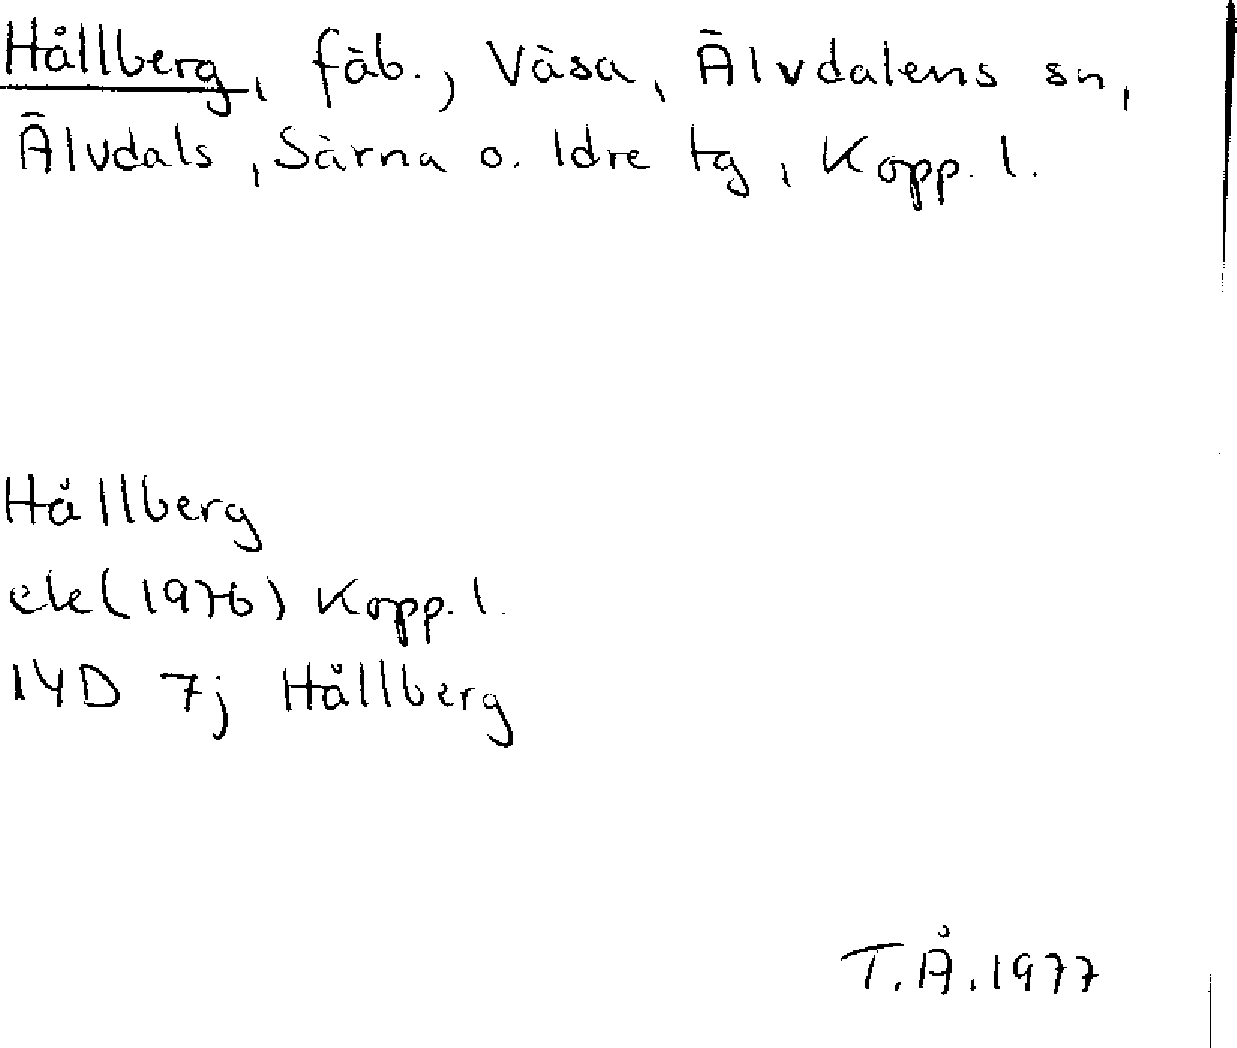 Hållberg, fäb., Väsa, Älvdalens sn,
Älvdals, Särna o. Idre tg, Kopp. l.
Hållberg
ek (1976) Kopp. l.
14D 7j Hållberg
T.Å. 1977